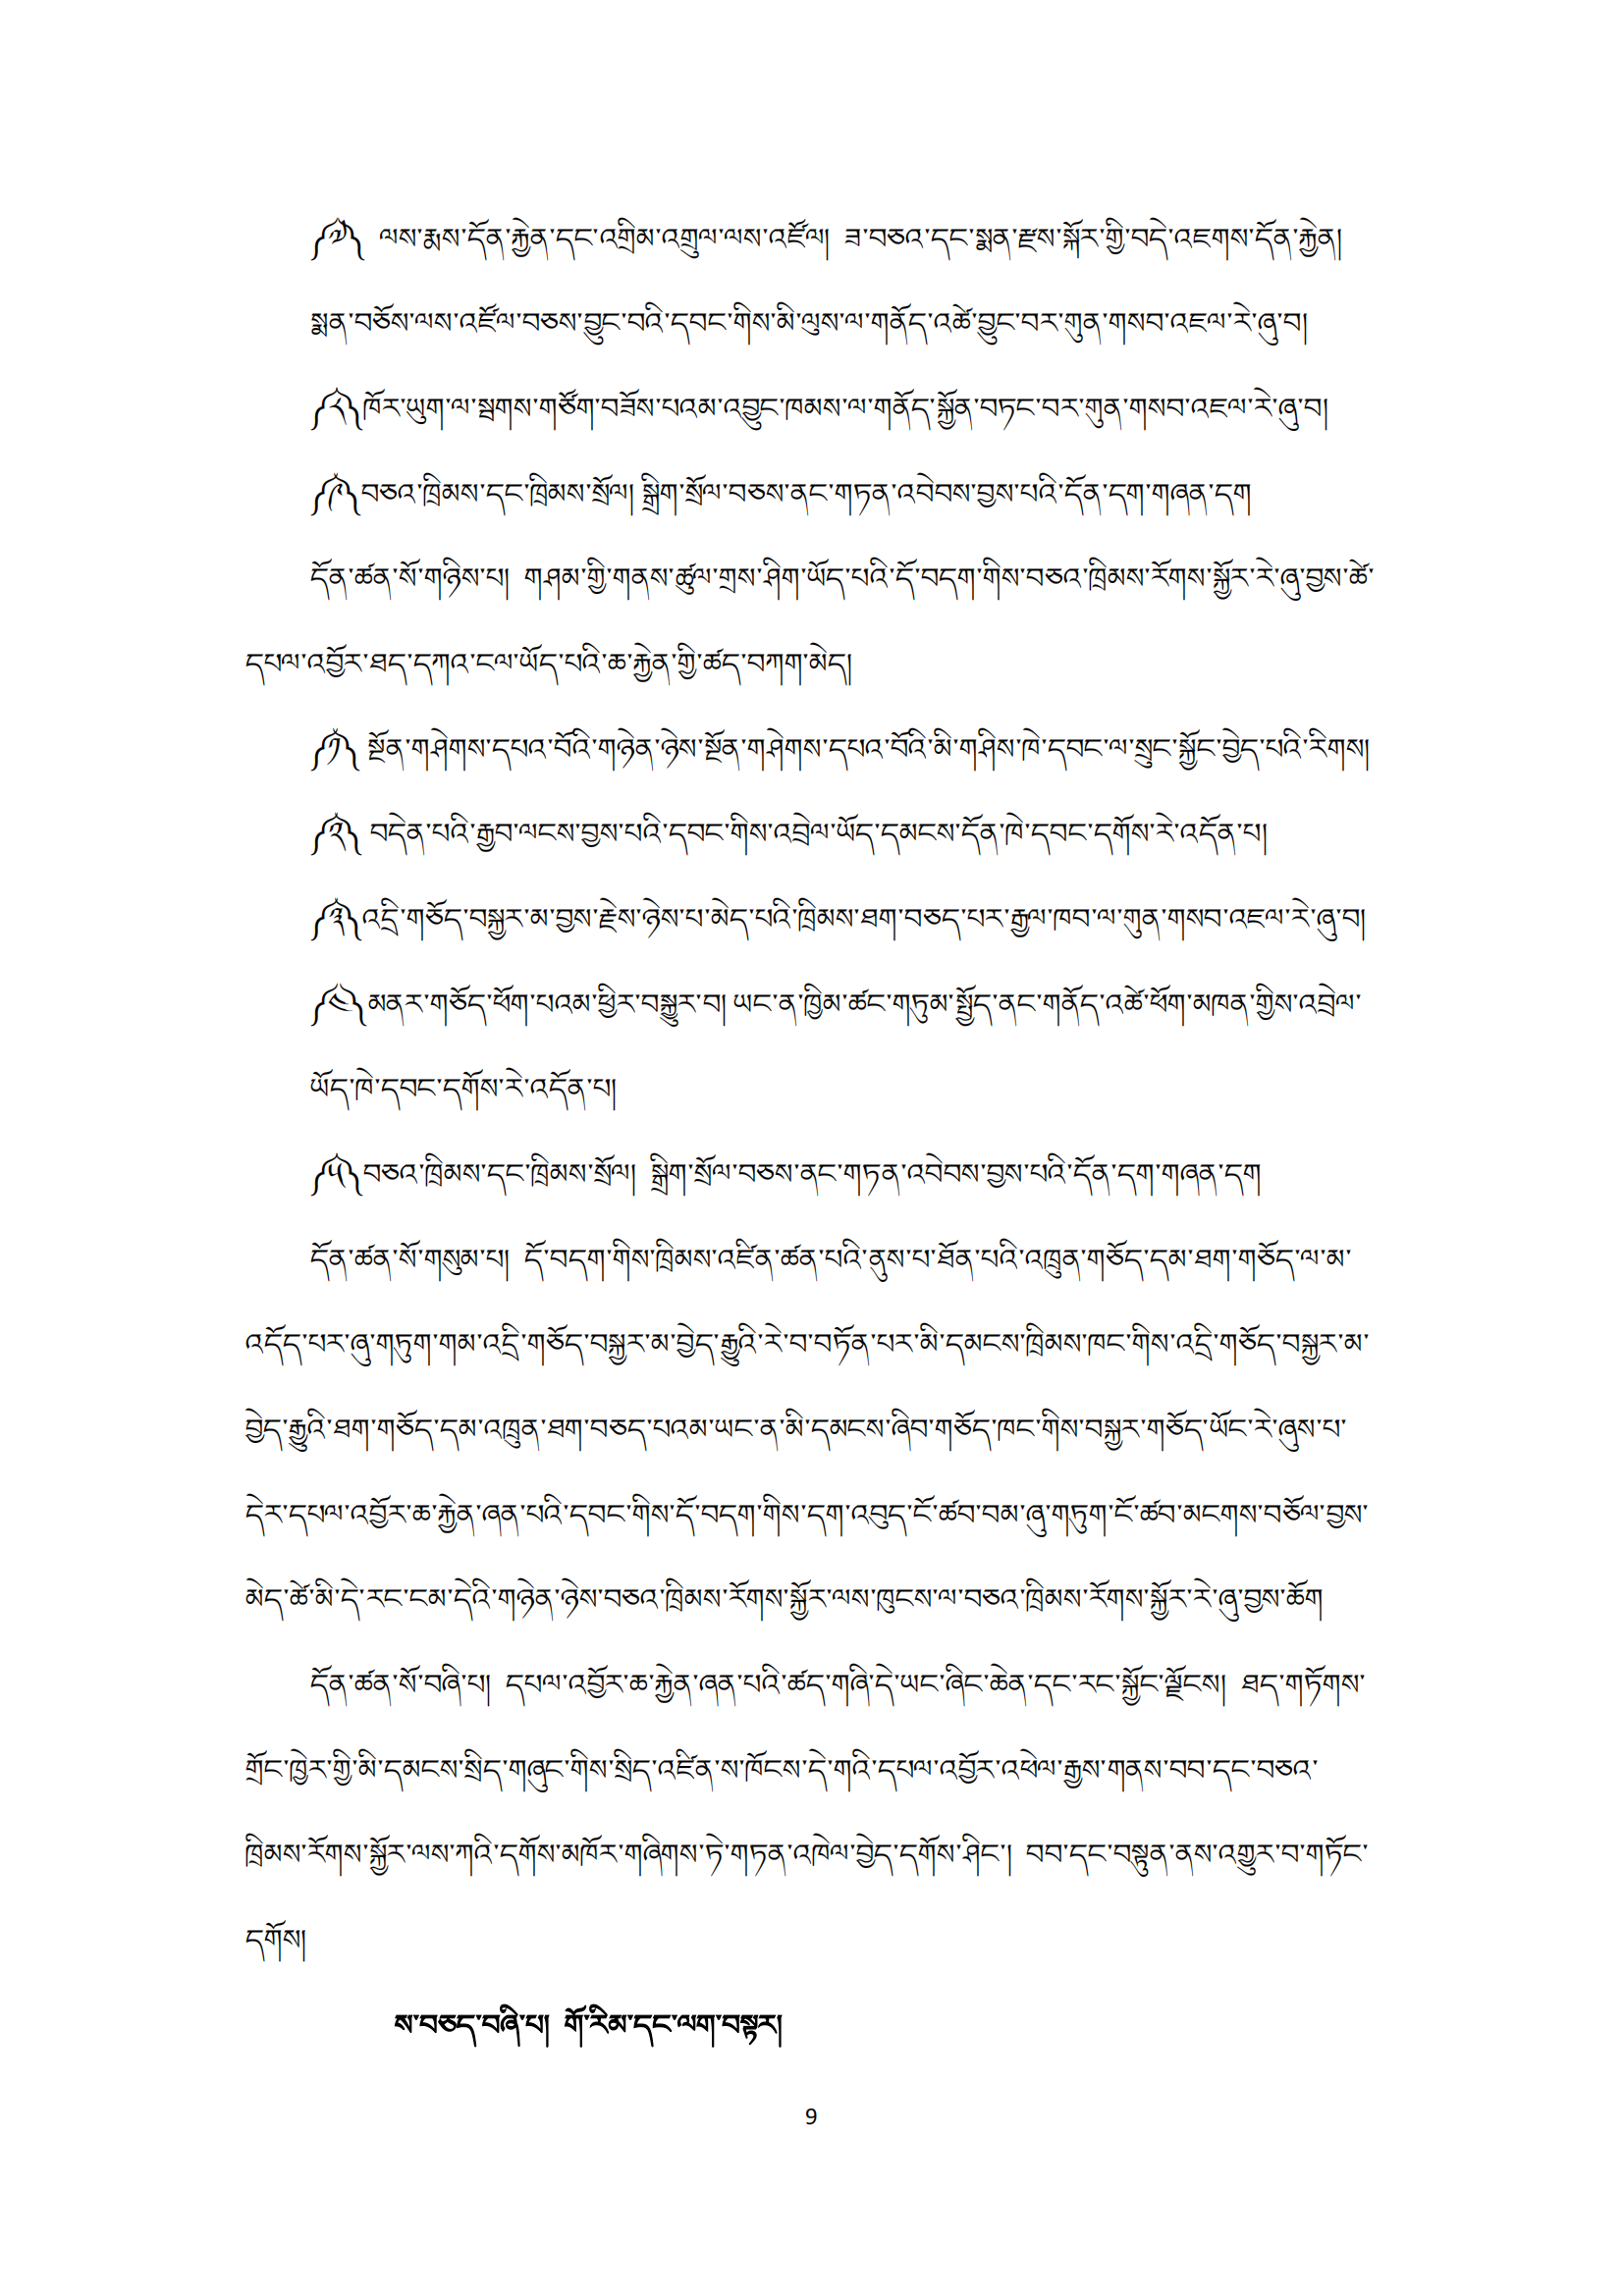 ༼༧༽ ལས་རྨས་དོན་རྐྱེན་དང་འགྲིམ་འགྲུལ་ལས་འཛོལ། ཟ་བཅའ་དང་སྨན་རྫས་སྐོར་གྱི་བདེ་འཇགས་དོན་རྐྱེན།
སྨན་བཅོས་ལས་འཛོལ་བཅས་བྱུང་བའི་དབང་གིས་མི་ལུས་ལ་གནོད་འཚེ་བྱུང་བར་གུན་གསབ་འཇལ་རེ་ཞུ་བ།
༼༨༽ཁོར་ཡུག་ལ་སྦགས་གཙོག་བཟོས་པའམ་འབྱུང་ཁམས་ལ་གནོད་སྐྱོན་བཏང་བར་གུན་གསབ་འཇལ་རེ་ཞུ་བ།
༼༩༽བཅའ་ཁྲིམས་དང་ཁྲིམས་སྲོལ། སྒྲིག་སྲོལ་བཅས་ནང་གཏན་འབེབས་བྱས་པའི་དོན་དག་གཞན་དག
དོན་ཚན་སོ་གཉིས་པ། གཤམ་གྱི་གནས་ཚུལ་གྲས་ཤིག་ཡོད་པའི་དོ་བདག་གིས་བཅའ་ཁྲིམས་རོགས་སྐྱོར་རེ་ཞུ་བྱས་ཚེ་
དཔལ་འབྱོར་ཐད་དཀའ་ངལ་ཡོད་པའི་ཆ་རྐྱེན་གྱི་ཚད་བཀག་མེད།
༼༡༽ སྔོན་གཤེགས་དཔའ་བོའི་གཉེན་ཉེས་སྔོན་གཤེགས་དཔའ་བོའི་མི་གཤིས་ཁེ་དབང་ལ་སྲུང་སྐྱོང་བྱེད་པའི་རིགས།
༼༢༽ བདེན་པའི་རྒྱབ་ལངས་བྱས་པའི་དབང་གིས་འབྲེལ་ཡོད་དམངས་དོན་ཁེ་དབང་དགོས་རེ་འདོན་པ།
༼༣༽འདྲི་གཅོད་བསྐྱར་མ་བྱས་རྗེས་ཉེས་པ་མེད་པའི་ཁྲིམས་ཐག་བཅད་པར་རྒྱལ་ཁབ་ལ་གུན་གསབ་འཇལ་རེ་ཞུ་བ།
༼༤༽མནར་གཅོད་ཕོག་པའམ་ཕྱིར་བསྐྱུར་བ། ཡང་ན་ཁྱིམ་ཚང་གཏུམ་སྤྱོད་ནང་གནོད་འཚེ་ཕོག་མཁན་གྱིས་འབྲེལ་
ཡོད་ཁེ་དབང་དགོས་རེ་འདོན་པ།
༼༥༽བཅའ་ཁྲིམས་དང་ཁྲིམས་སྲོལ། སྒྲིག་སྲོལ་བཅས་ནང་གཏན་འབེབས་བྱས་པའི་དོན་དག་གཞན་དག
དོན་ཚན་སོ་གསུམ་པ། དོ་བདག་གིས་ཁྲིམས་འཛིན་ཚན་པའི་ནུས་པ་ཐོན་པའི་འཁྲུན་གཅོད་དམ་ཐག་གཅོད་ལ་མ་
འདོད་པར་ཞུ་གཏུག་གམ་འདྲི་གཅོད་བསྐྱར་མ་བྱེད་རྒྱུའི་རེ་བ་བཏོན་པར་མི་དམངས་ཁྲིམས་ཁང་གིས་འདྲི་གཅོད་བསྐྱར་མ་
བྱེད་རྒྱུའི་ཐག་གཅོད་དམ་འཁྲུན་ཐག་བཅད་པའམ་ཡང་ན་མི་དམངས་ཞིབ་གཅོད་ཁང་གིས་བསྐྱར་གཅོད་ཡོང་རེ་ཞུས་པ་
དེར་དཔལ་འབྱོར་ཆ་རྐྱེན་ཞན་པའི་དབང་གིས་དོ་བདག་གིས་དག་འབུད་ངོ་ཚབ་བམ་ཞུ་གཏུག་ངོ་ཚབ་མངགས་བཅོལ་བྱས་
མེད་ཚེ་མི་དེ་རང་ངམ་དེའི་གཉེན་ཉེས་བཅའ་ཁྲིམས་རོགས་སྐྱོར་ལས་ཁུངས་ལ་བཅའ་ཁྲིམས་རོགས་སྐྱོར་རེ་ཞུ་བྱས་ཆོག
དོན་ཚན་སོ་བཞི་པ། དཔལ་འབྱོར་ཆ་རྐྱེན་ཞན་པའི་ཚད་གཞི་དེ་ཡང་ཞིང་ཆེན་དང་རང་སྐྱོང་ལྗོངས། ཐད་གཏོགས་
གྲོང་ཁྱེར་གྱི་མི་དམངས་སྲིད་གཞུང་གིས་སྲིད་འཛིན་ས་ཁོངས་དེ་གའི་དཔལ་འབྱོར་འཕེལ་རྒྱས་གནས་བབ་དང་བཅའ་
ཁྲིམས་རོགས་སྐྱོར་ལས་ཀའི་དགོས་མཁོར་གཞིགས་ཏེ་གཏན་འཁེལ་བྱེད་དགོས་ཤིང་། བབ་དང་བསྟུན་ནས་འགྱུར་བ་གཏོང་
དགོས།
ས་བཅད་བཞི་པ། གོ་རིམ་དང་ལག་བསྟར།
9